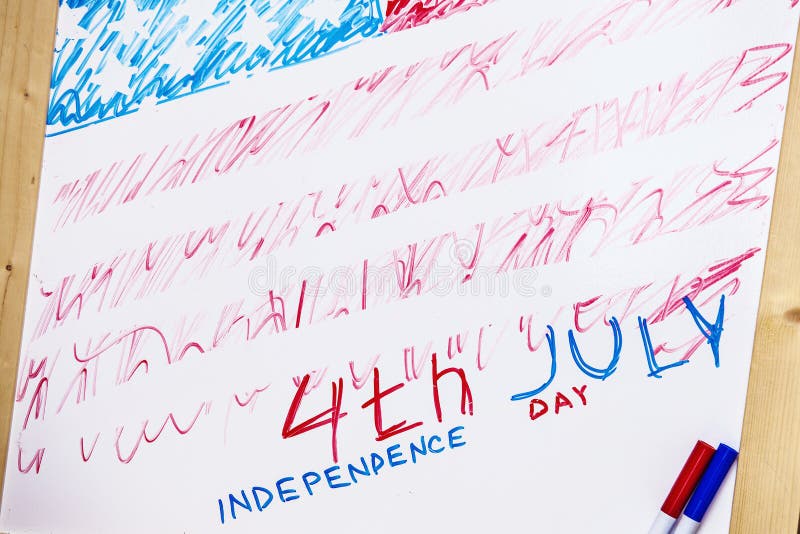 4th JULY
INDEPENDENCE DAY
dreamstime